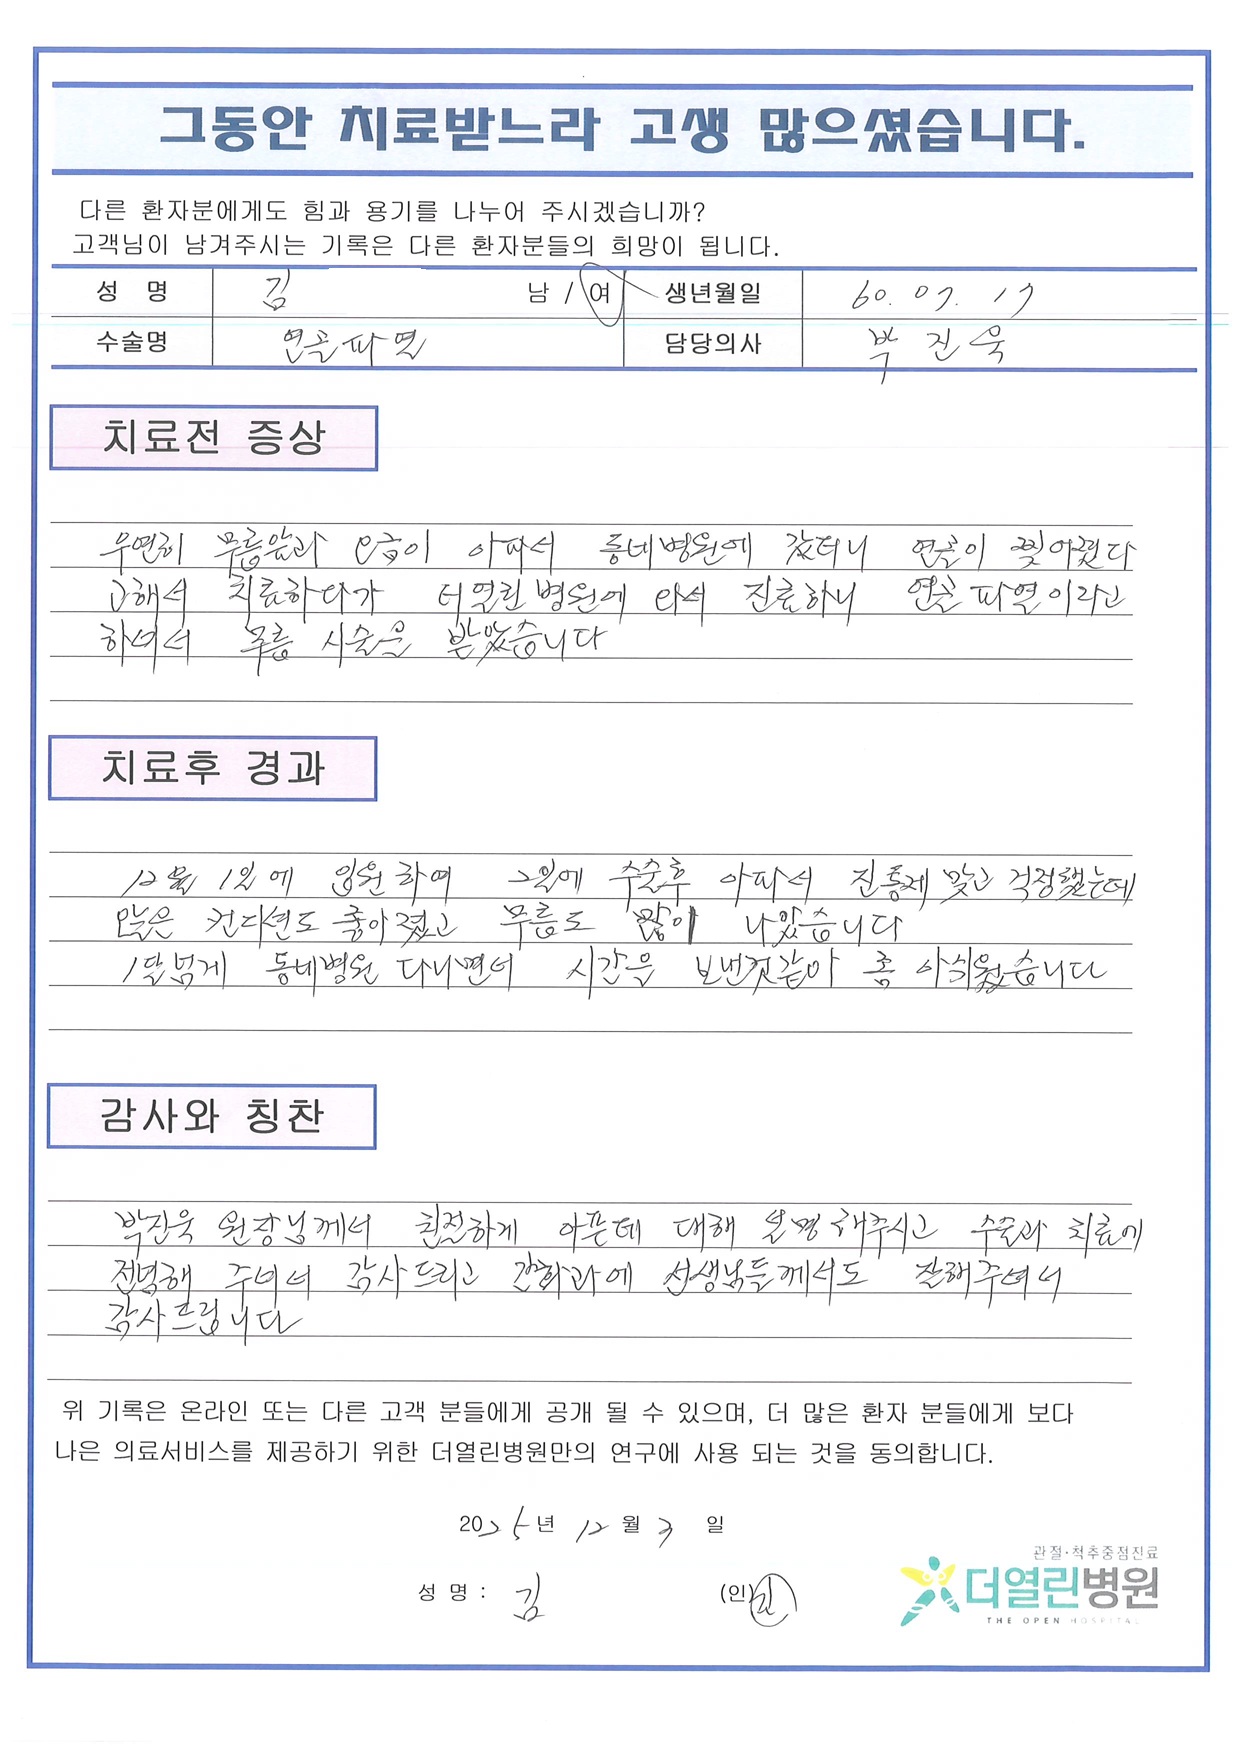 그동안 치료받느라 고생 많으셨습니다.
다른 환자분에게도 힘과 용기를 나누어 주시겠습니까?
고객님이 남겨주시는 기록은 다른 환자분들의 희망이 됩니다.
성 명 김 남 / 여 생년월일 60. 07. 17
수술명 연골파열 담당의사 박진욱
치료전 증상
우연히 무릎앞과 오금이 아파서 동네병원에 갔더니 연골이 찢어졌다
고해서 치료하다가 더열린병원에 와서 진료하니 연골파열이라고
하여서 무릎 시술을 받았습니다
치료후 경과
12월 1일에 입원하여 2일에 수술후 아파서 진통제 맞고 걱정했는데
오늘은 컨디션도 좋아졌고 무릎도 많이 나았습니다
1달넘게 동네병원 다니면서 시간을 보낸것같아 좀 아쉬웠습니다
감사와 칭찬
박진욱 원장님께서 친절하게 아픈데 대해 설명해주시고 수술과 치료에
전념해 주셔서 감사드리고 간호과에 선생님들께서도 잘해주셔서
감사드립니다
위 기록은 온라인 또는 다른 고객 분들에게 공개 될 수 있으며, 더 많은 환자 분들에게 보다
나은 의료서비스를 제공하기 위한 더열린병원만의 연구에 사용 되는 것을 동의합니다.
2025년 12월 3일
성 명 : 김 (인)
관절·척추중점진료
더열린병원
THE OPEN HOSPITAL